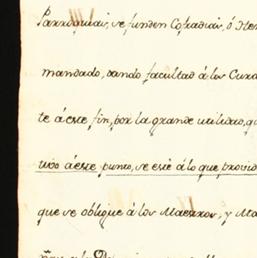 Parroquias, se funden Cofradias, ó Her
mandado, dando facultad á los Cura
te á este fin, por la grande utilidad, q
tivo á este punto, se esté á lo que provid
que se oblique á los Maestros, y Ma